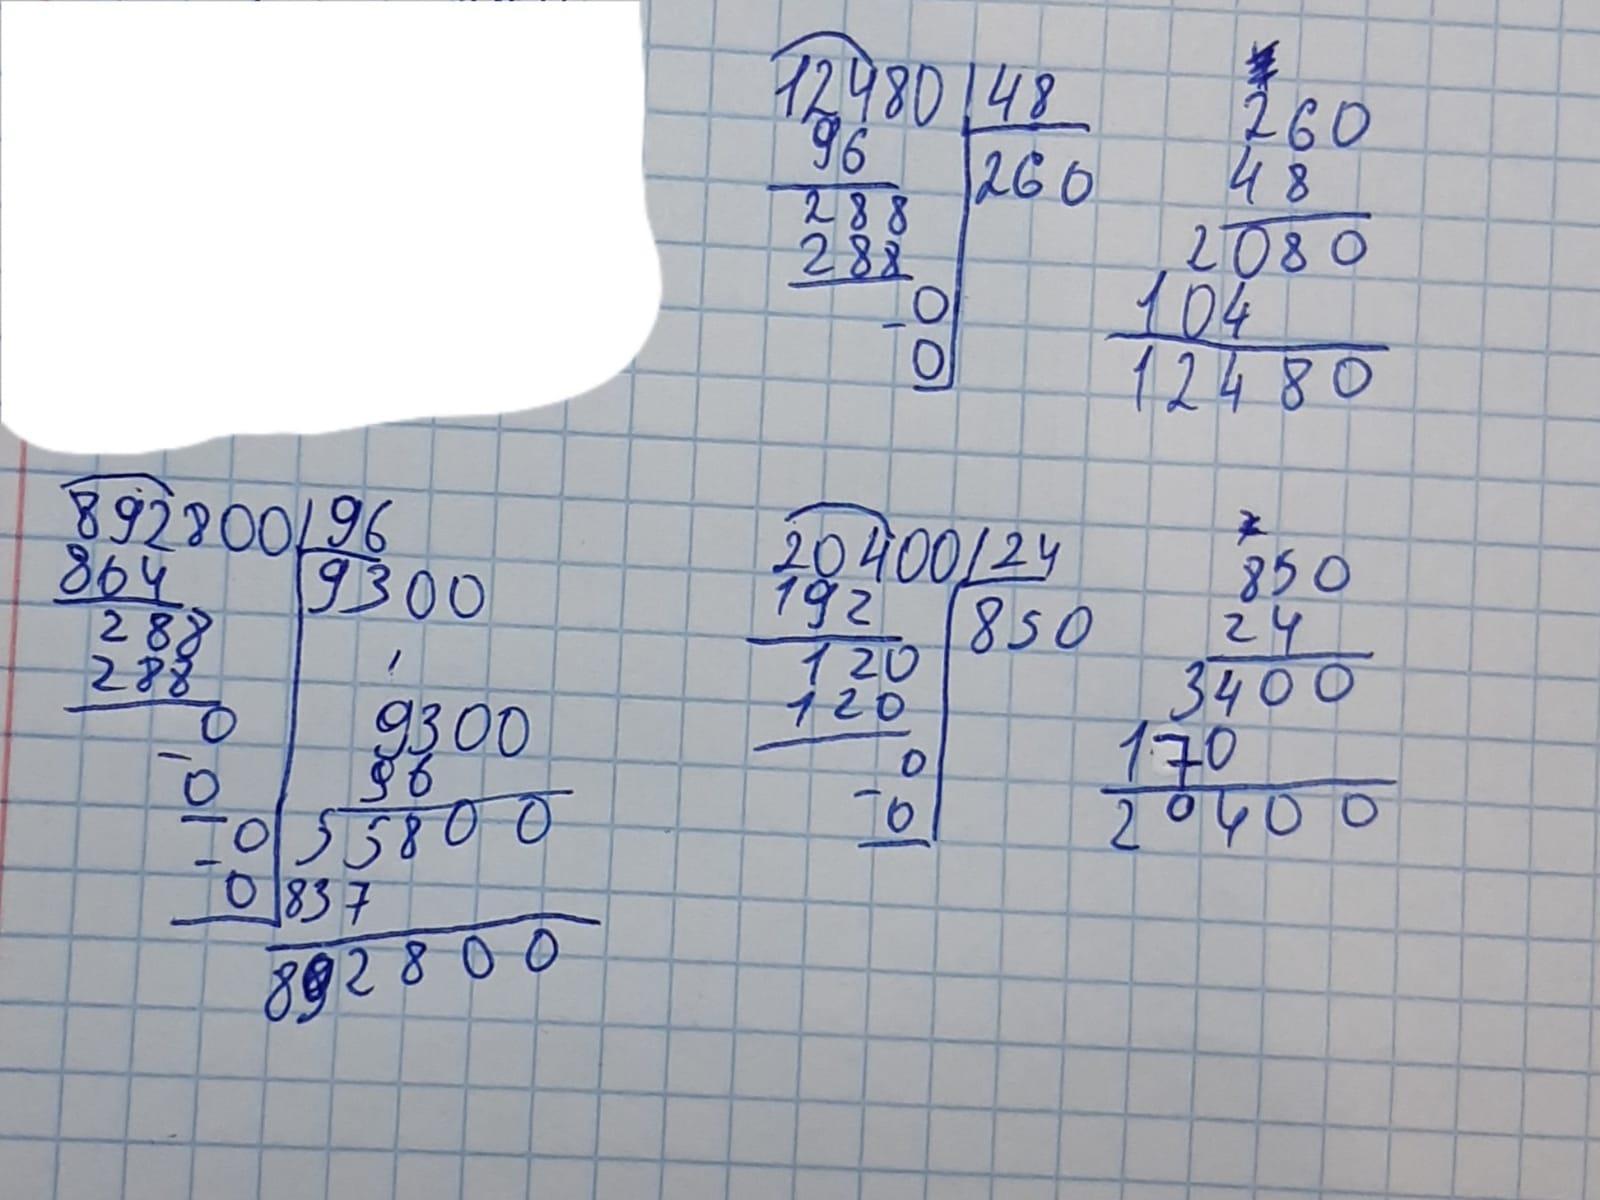 12480 | 48
96
260
288
288
0
- 0
*
260
48
2080
104
12480
892800 | 96
864
9300
288
288
0
- 0
0
- 0
9300
96
55800
837
892800
20400 | 24
192
850
120
120
0
- 0
*
850
24
3400
170
20400